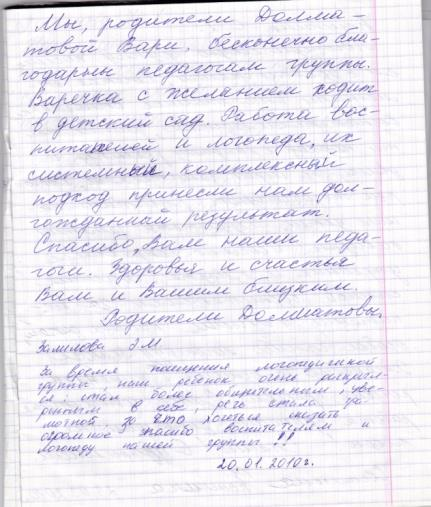 Мы, родители Долма-
товой Вари, бесконечно бла-
годарны педагогам группы.
Варечка с желанием ходит
в детский сад. Работа вос-
питателей и логопеда, их
системный, комплексный
подход принесли нам дол-
гожданный результат.
Спасибо, Вам наши педа-
гоги. Здоровья и счастья
Вам и Вашим близким.
Родители Долматовы.
За время посещения логопедической
группы, наш ребенок очень раскрыл-
ся: стал более общительным, уве-
ренным в себе, речь стала гра-
мотной. За это хочется сказать
огромное спасибо воспитателям и
логопеду нашей группы!!
20.01.2010г.